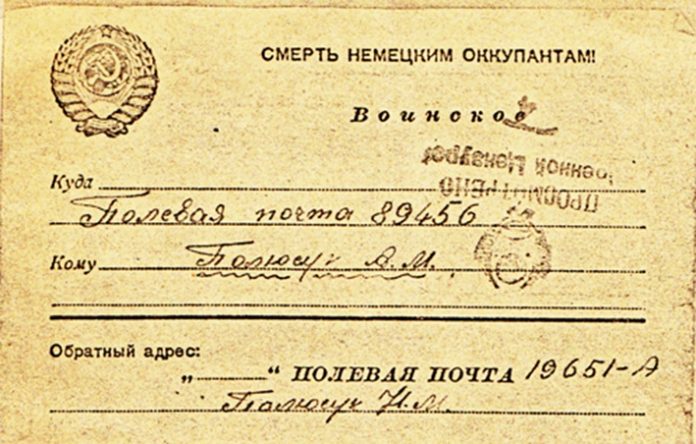 СМЕРТЬ НЕМЕЦКИМ ОККУПАНТАМ!
Воинское
ПРОСМОТРЕНО
Военной Цензурой
Куда
Полевая почта 89456
Кому А.М.
Обратный адрес:
„ “ ПОЛЕВАЯ ПОЧТА 19651-А
Н.М.